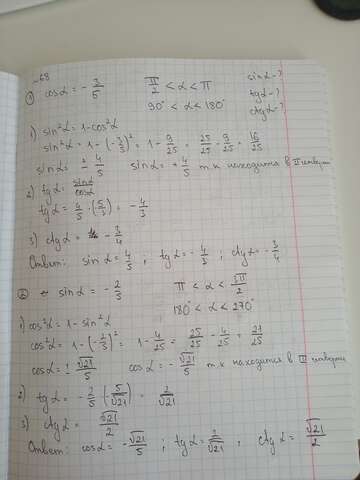 №68
① cos α = - 3/5   π/2 < α < π   sin α - ?
90° < α < 180°   tg α - ?
ctg α - ?
1) sin²α = 1 - cos²α
sin²α = 1 - (-3/5)² = 1 - 9/25 = 25/25 - 9/25 = 16/25
sin α = ± 4/5   sin α = + 4/5 т к находится в II четверти
2) tg α = sin α/cos α
tg α = 4/5 · (5/3) = - 4/3
3) ctg α = - 3/4
Ответ: sin α = 4/5 ; tg α = - 4/3 ; ctg α = - 3/4
② sin α = - 2/5   π < α < 3π/2
180° < α < 270°
1) cos²α = 1 - sin²α
cos²α = 1 - (-2/5)² = 1 - 4/25 = 25/25 - 4/25 = 21/25
cos α = ± √21/5   cos α = - √21/5 т к находится в III четверти
2) tg α = - 2/5 · (- 5/√21) = 2/√21
3) ctg α = √21/2
Ответ: cos α = - √21/5 ; tg α = 2/√21 ; ctg α = √21/2